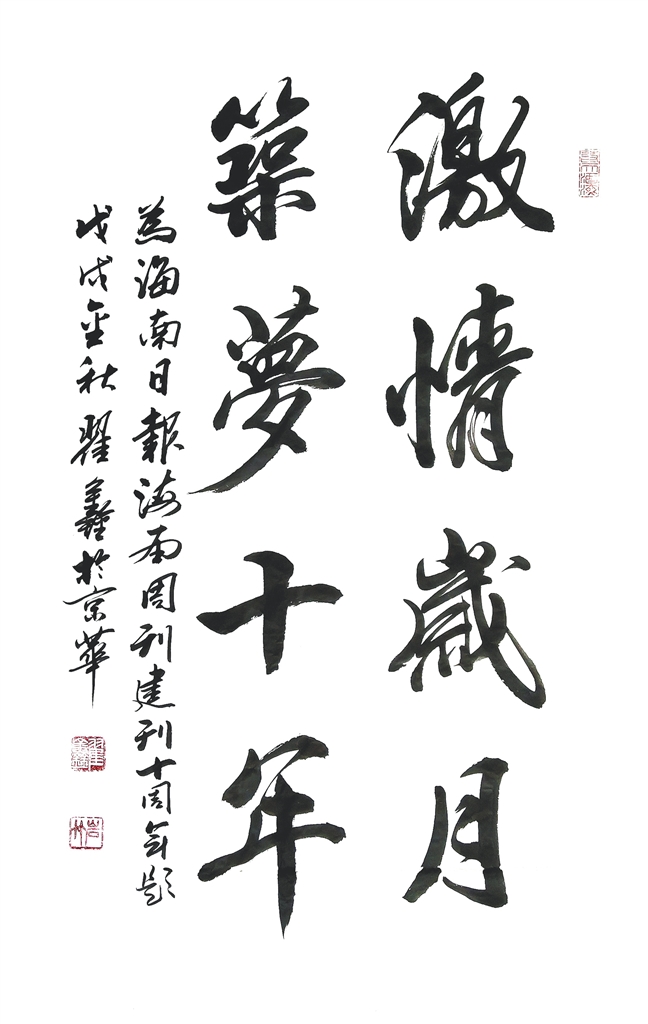 激情歲月
築夢十年
為海南日報海南周刊建刊十周年題
戊戌金秋翟鑫於京華